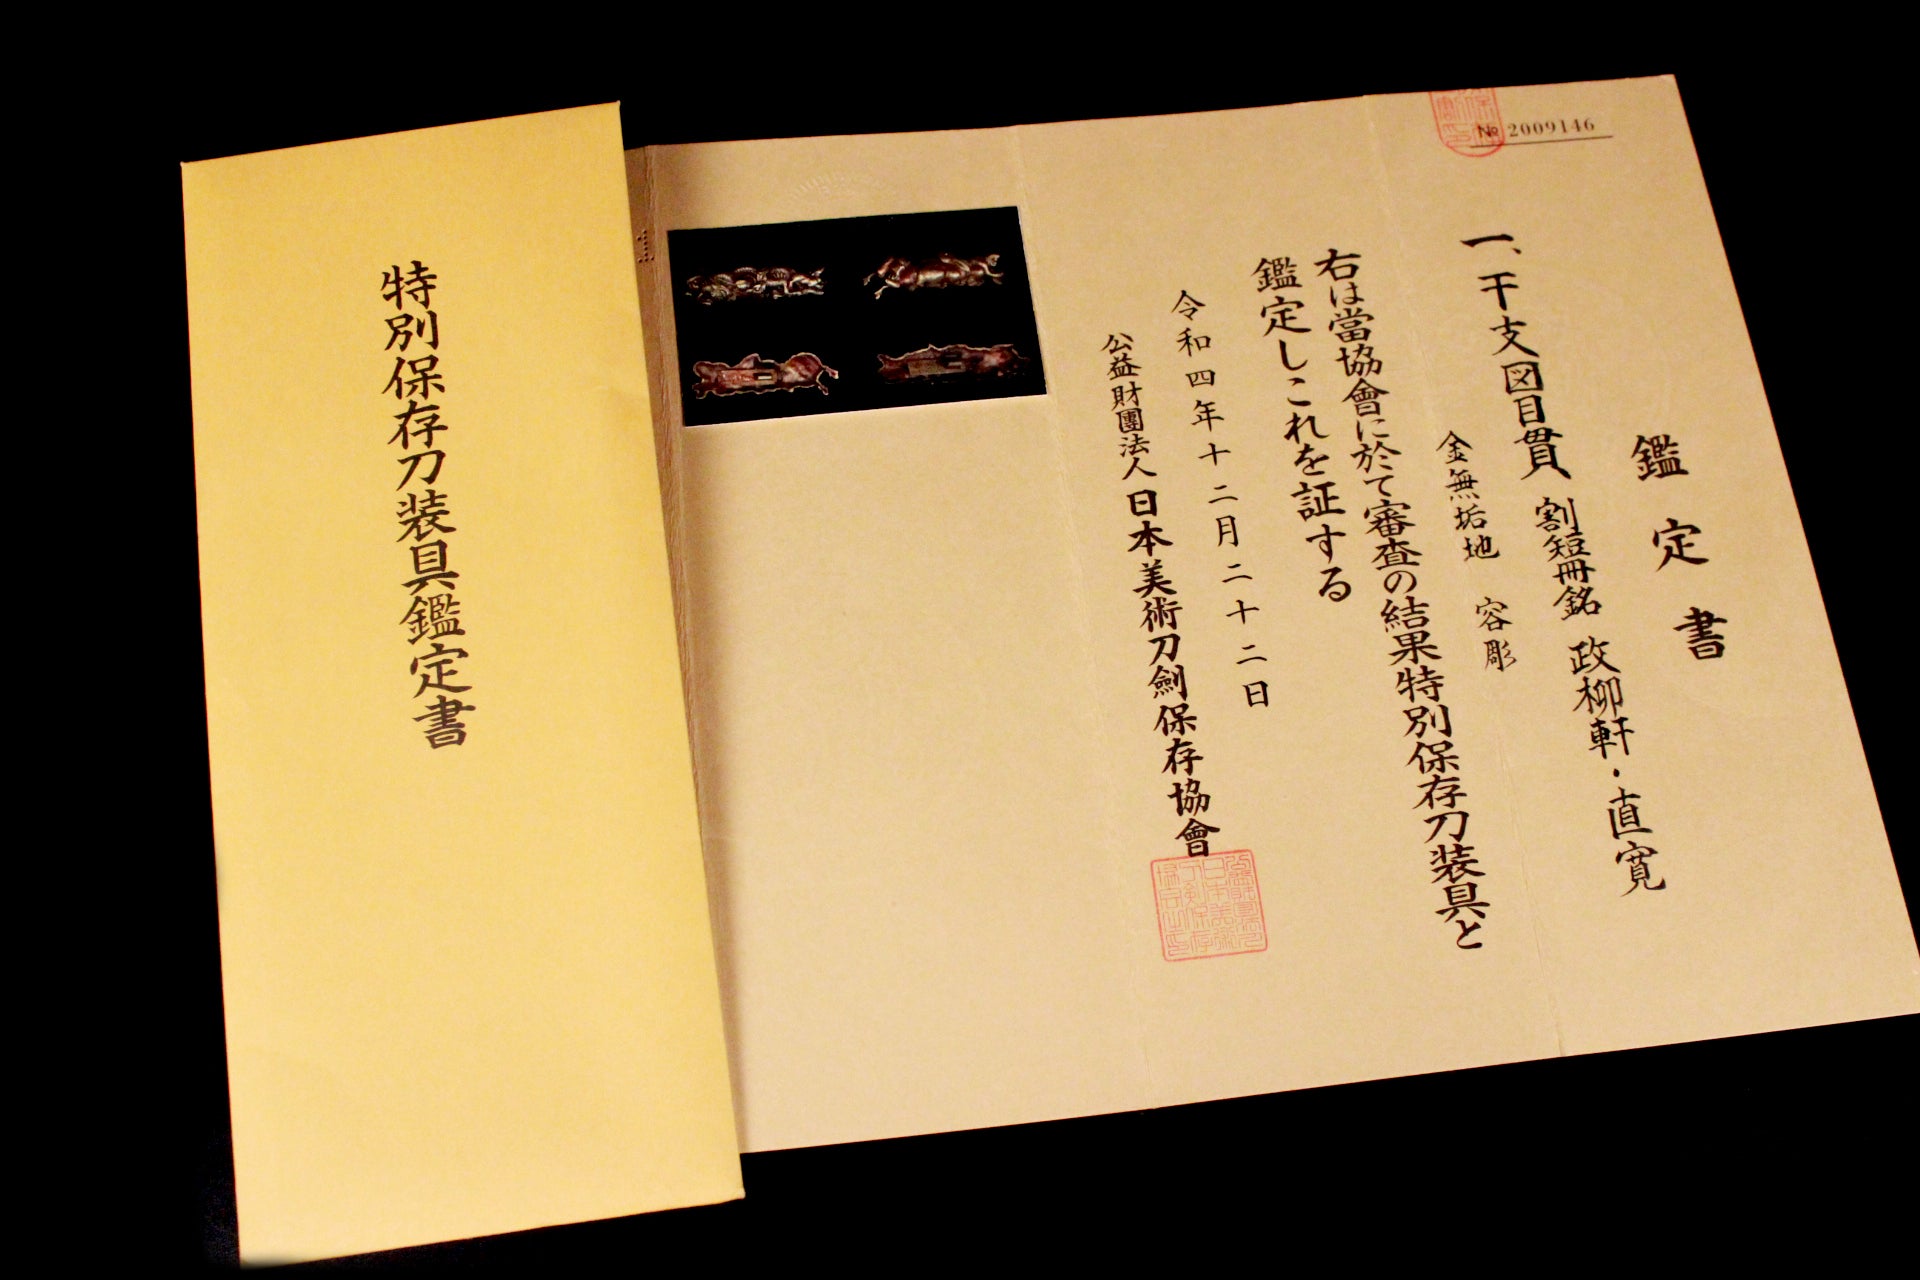 特別保存刀装具鑑定書
№ 2009146
鑑定書
一、干支図目貫 割短冊銘 政柳軒・直寛
金無垢地 容彫
右は當協會に於て審査の結果特別保存刀装具と
鑑定しこれを証する
令和四年十二月二十二日
公益財團法人日本美術刀劍保存協會